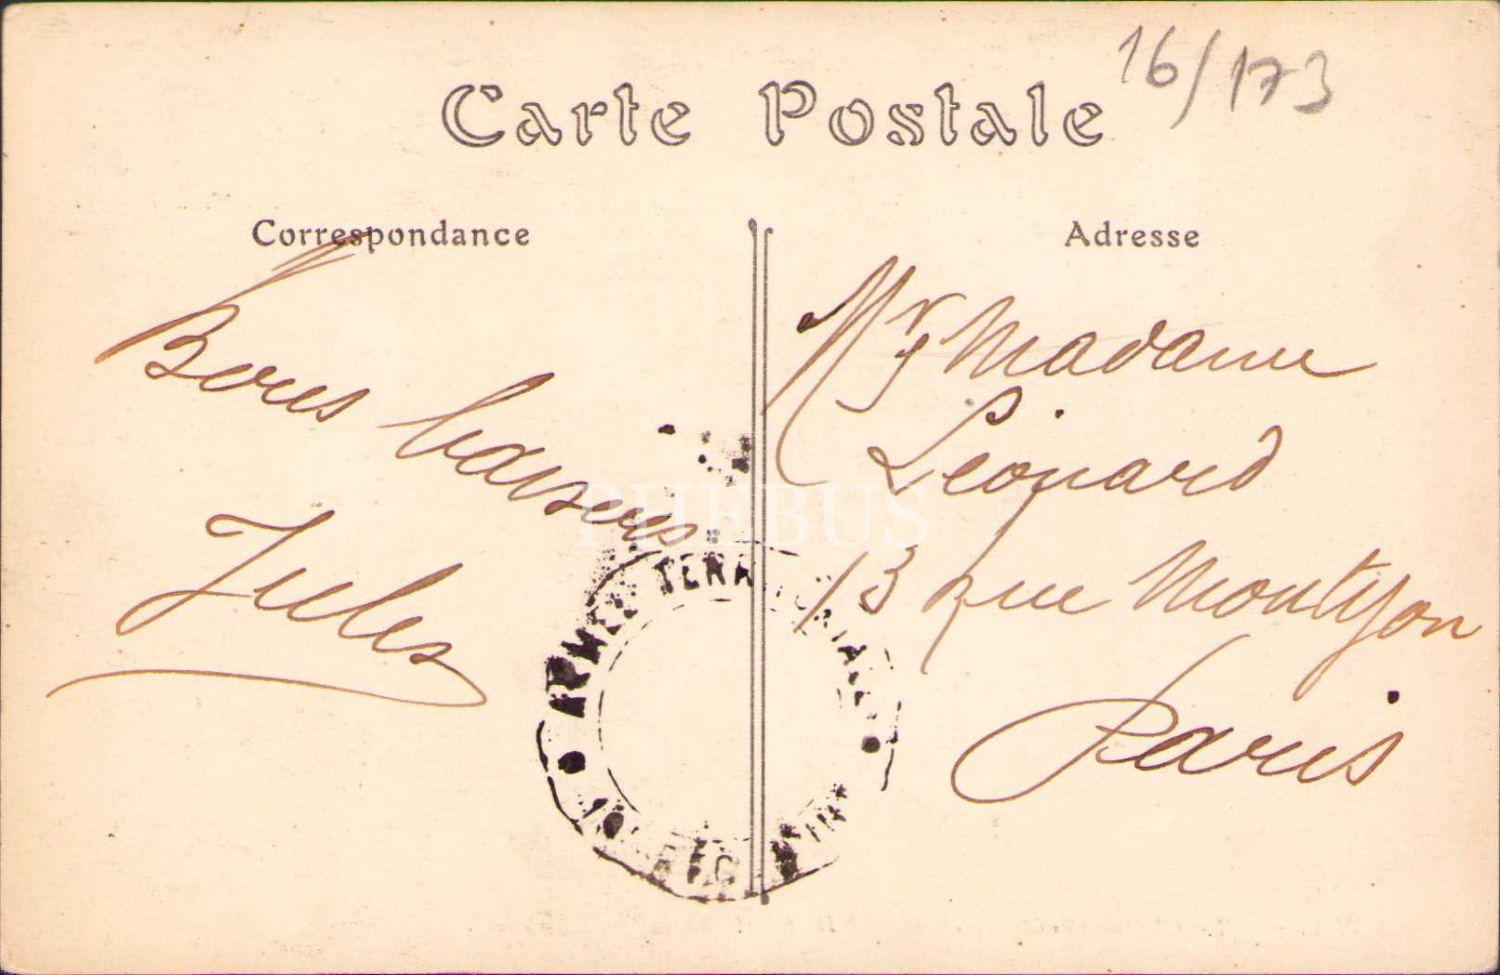 16/173
Carte Postale
Correspondance
Adresse
Bons baisers
Jules
Mr & Madame
Léonard
13 rue Montyon
Paris
PHEBUS
ARMÉE TERRITORIALE